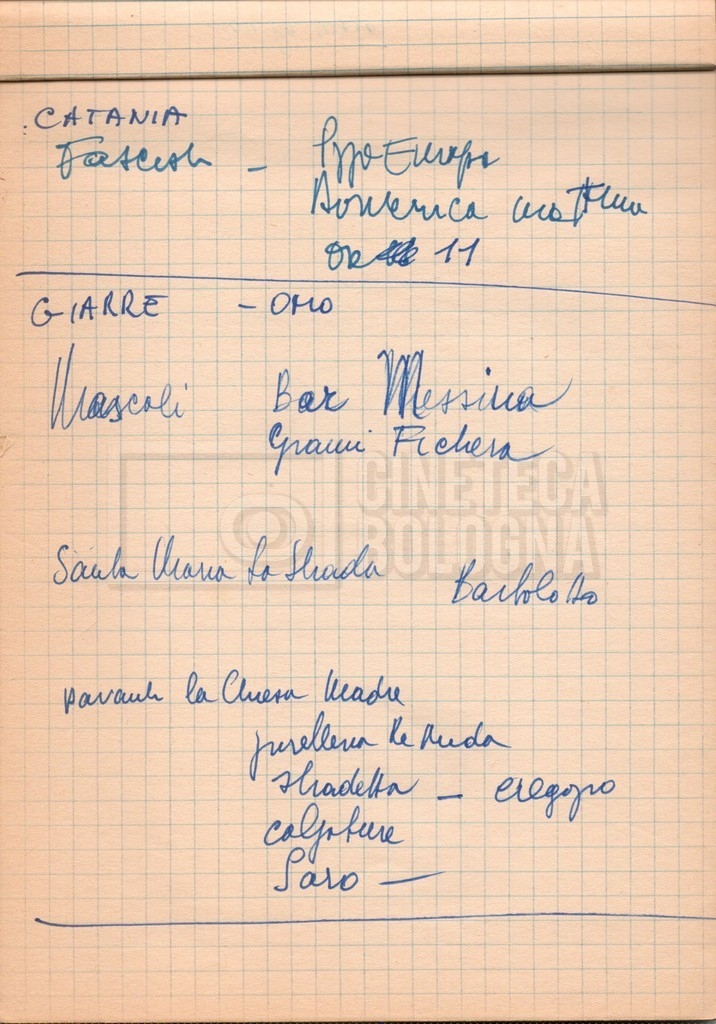 CATANIA
Fascisti - P.zza Europa
Domenica mattina
ore 11
GIARRE - OMO
Mascali Bar Messina
Gianni Fichera
Santa Maria La Strada Bartolotta
davanti la Chiesa Madre
gioielleria
stradetta -
calzature
Saro -
CINETECA
BOLOGNA